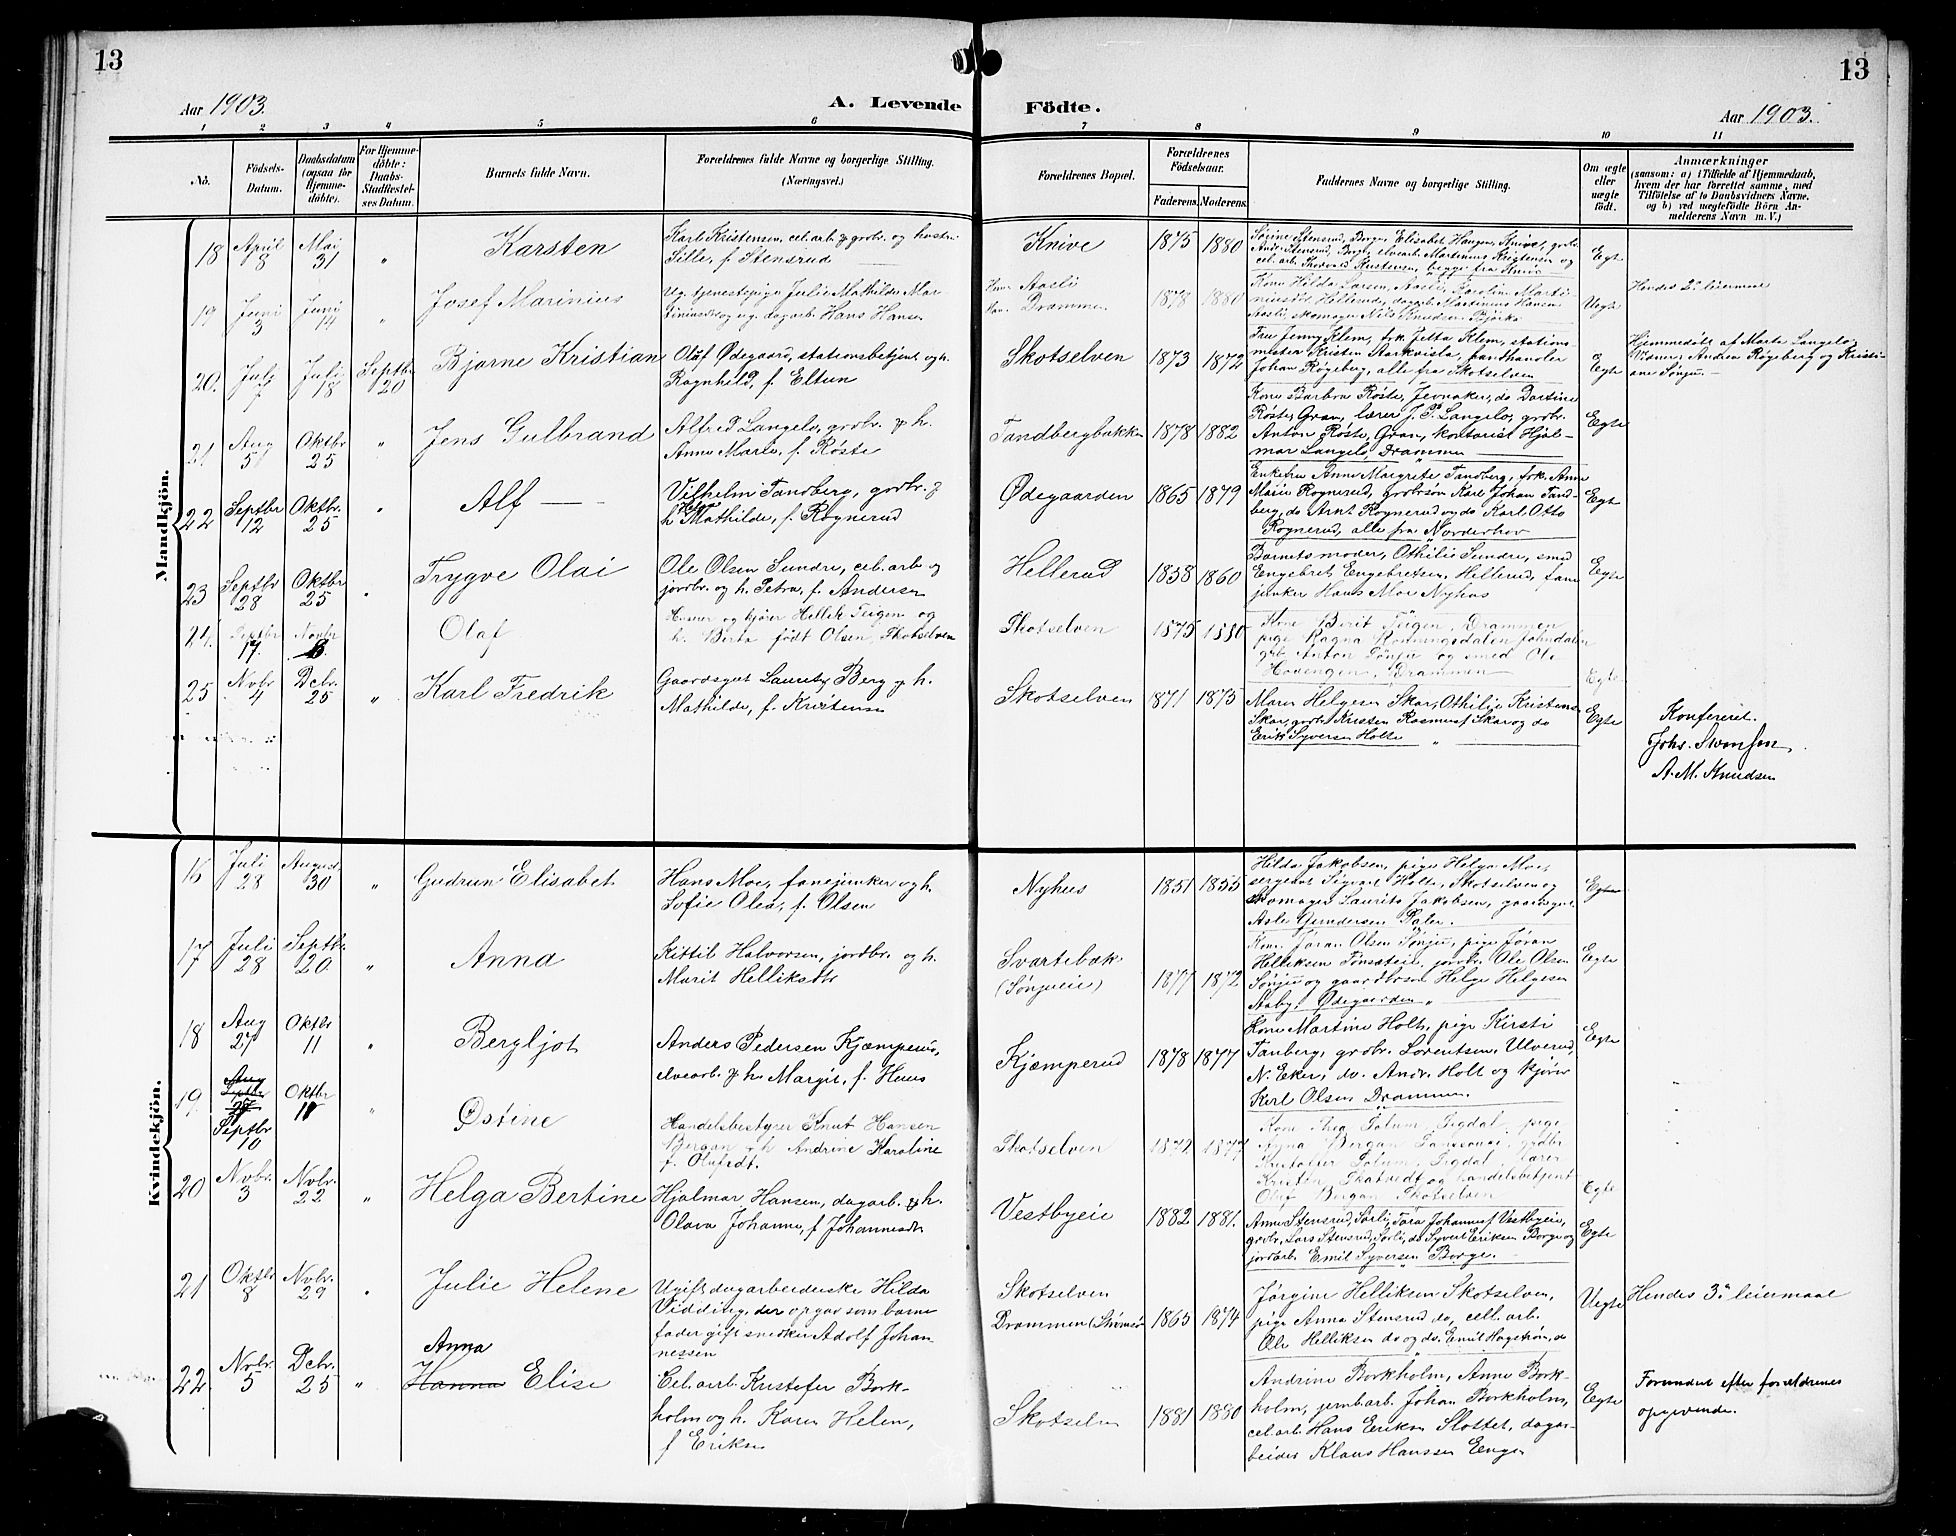 13
13
Aar 1903.
A. Levende Födte.
Aar 1903.
1 2 3 4 5 6 7 8 9 10 11
No.
Födsels-Datum.
Daabsdatum (ogsaa for Hjemme-döbte).
For Hjemme-döbte: Daabs-Stadfæstel-ses Datum.
Barnets fulde Navn.
Forældrenes fulde Navne og borgerlige Stilling. (Næringsvei.)
Forældrenes Bopæl.
Forældrenes Födselsaar.
Faderens. Moderens.
Faddernes Navne og borgerlige Stilling.
Om ægte eller uægte födt.
Anmærkninger
(saasom: a) i Tilfælde af Hjemmedaab, hvem der har forrettet samme, med Tilföielse af to Daabsvidners Navne, og b) ved uægtefödte Börn An-melderens Navn m. V.)
Mandkjön.
18 April 8 Mai 31 " Karsten
Karl Kristensen, cel. arb. & grdbr. og hustru
Sille, f. Stensrud
Knive 1875 1880
Sørine Stensrud, Borge, Elisabet Hansen, Knive, grdbr.
Andr. Stensrud, Borge, elvearb. Martinius Kristensen og
cel. arb. Thorvald Kristensen, begge fra Knive
Egte
19 Juni 3 Juni 14 " Josef Marinius
Ug. tjenestepige Julie Mathilde Mar-
tiniusdr og ug. dagarb. Hans Hansen
Aasli
Drammen 1878 1880
Kone Hilda Larsen, Aasli, Karoline Marti-
niusdt. Hellerud, dagarb. Martinius Hansen
Aasli, skomager Nils Knudsen Bjørke
Uegte
Hendes 2' leiermaal
20. Juli 7 Juli 18 Septbr 20 Bjarne Kristian
Oluf Ødegaard, stationsbetjent og h.
Ragnhild, f. Eltun
Skotselven 1873 1872
Fru Jenny Klem, frk Jetta Klem, stations-
mester Kristen Starkvista, landhandler
Johan Røgeberg, alle fra Skotselven
Egte
Hjemmedøbt af Marte Langelo,
Vidner: Andrea Røgeberg og Kristi-
ane Sønju. —
21 Aug 5 Oktbr 25 " Jens Gulbrand
Alfred Langelo, grdbr. & h.
Anne Marie, f. Røste
Tandbergbakken 1878 1882
Kone Barbra Røste, Jevnaker, do Dortine
Røste, Gran, lærer J. P. Langelo, grdbr.
Anton Røste, Gran, kontorist Hjal-
mar Langelo, Drammen
Egte
22 Septbr 12 Oktbr. 25 " Alf —
Vilhelm Tandberg, grdbr. &
h Helga Mathilde, f. Rognerud
Ødegaarden 1865 1879
Enkefru Anne Margrete Tandberg, frk. Anna
Marie Rognerud, grdbrsøn Karl Johan Tand-
berg, do Arnt Rognerud og do Karl Otto
Rognerud, alle fra Norderhov
Egte
23 Septbr 28 Oktbr 25 " Trygve Olai
Ole Olsen Sundre, cel. arb og
jordbr. og h. Petra, f. Andersen
Hellerud 1858 1860
Barnets moder, Othilie Sundre, smed
Engebret Engebretsen, Hellerud, fane-
junker Hans Moe Nyhus
Egte
24. Septbr 17 Novbr 8. Olaf
Huseier og kjører Hellek Teigen og
h. Berta født Olsen, Skotselven
Skotselven 1875 1880
Kone Berit Teigen, Drammen
pige Ragna Rønningsdalen Jondalen
gdb. Anton Sønju og smed Ole
Hovengen, Drammen
Egte
25 Novbr. 4 Dcbr. 25 " Karl Fredrik
Gaardsgut Lauritz Berg & h.
Mathilde, f. Kristensen
Skotselven 1871 1875
Maren Helgesen Skar, Othilie Kristensen
Skar, grdbr Kristen Rasmussen Skar og do
Erik Syversen Holte "
Egte
Konfereret.
Johs. Svensen
A. M. Knudsen
Kvindekjön.
16 Juli 28 August 30 " Gudrun Elisabet
Hans Moe, fanejunker og h.
Sofie Olea, f. Olsen
Nyhus 1851 1855
Hilda Jakobsen, pige Helga Moe,
sergeant Sigvart Holte, Skotselven og
skomager Laurits Jakobsen, gaardsgut
Asle Gundersen Paler.
Egte
17 Juli 28 Septbr. 20. " Anna
Kittil Halvorsen, jordbr. og h.
Marit Helliksdtr
Svartebæk
(Sønjueie) 1877 1872
Kone Jøran Olsen Sønju, pige Jøran
Helliksen Tønsateie, jordbr. Ole Olsen
Sønju og gaardbrsøn Helge Helgesen
Aaby. Ødegaarden "
Egte
18 Aug 27 Oktbr 11 " Bergljot
Anders Pedersen Kjæmperud,
elvearb. & h. Margit, f. Huus
Kjæmperud 1878 1877
Kone Martine Holt, pige Kirsti
Tanberg, grdbr. Lorentsen, Ulverud,
N. Eker, do. Andr. Holt og kjører
Karl Olsen Drammen.
Egte
19 Septbr 10 Oktbr 11 " Østine
Handelsbestyrer Knut Hansen
Bergan & h Andrine Karoline
f. Olafsdt.
Skotselven 1872 1877
Kone Thea Totum, Sigdal, pige
Bergan
Kristoffer Totum, Sigdal, lærer
Kristen Skatvedt og handelsbetjent
Olaf Bergan Skotselven
Egte
20 Novbr. 3 Novbr. 22 " Helga Bertine
Hjalmar Hansen, dagarb. & h.
Olava Johanne, f. Johannesdtr
Vestbyeie 1882 1881.
Anne Stensrud, Sørli, Tora Johannesf Vestbyeie,
grdbr. Lars Stensrud, Sørli, do Syvert Eriksen Borge og
jordarb. Emil Syversen Borge. —
Egte
21 Oktbr 8 Novbr. 29 " Julie Helene
Ugift dagarbeiderske Hilda
Vidding, der opgav som barne-
fader gift snedker Adolf Johan-
nessen
Skotselven
Drammen (Strømsø) 1865 1874
Jørgine Helliksen Skotselven,
pige Anna Stensrud do, cell. arb.
Ole Helliksen do og do. Emil Hagstrøm, do
Uegte
Hendes 3' leiermaal
Anna
22. Novbr. 5 Dcbr. 25 " Hanna Elise
Cel. arb. Kristofer Bork-
holm og h. Karen Helen,
f Eriksen
Skotselven 1881 1880
Andrine Borkholm, Anna Bork-
holm, jernbarb. Johan Borkholm,
cel. arb Hans Eriksen Slottet, dagar-
beider Klaus Hanssen Eenge
Egte
Forandret efter forældrenes
opgivende.